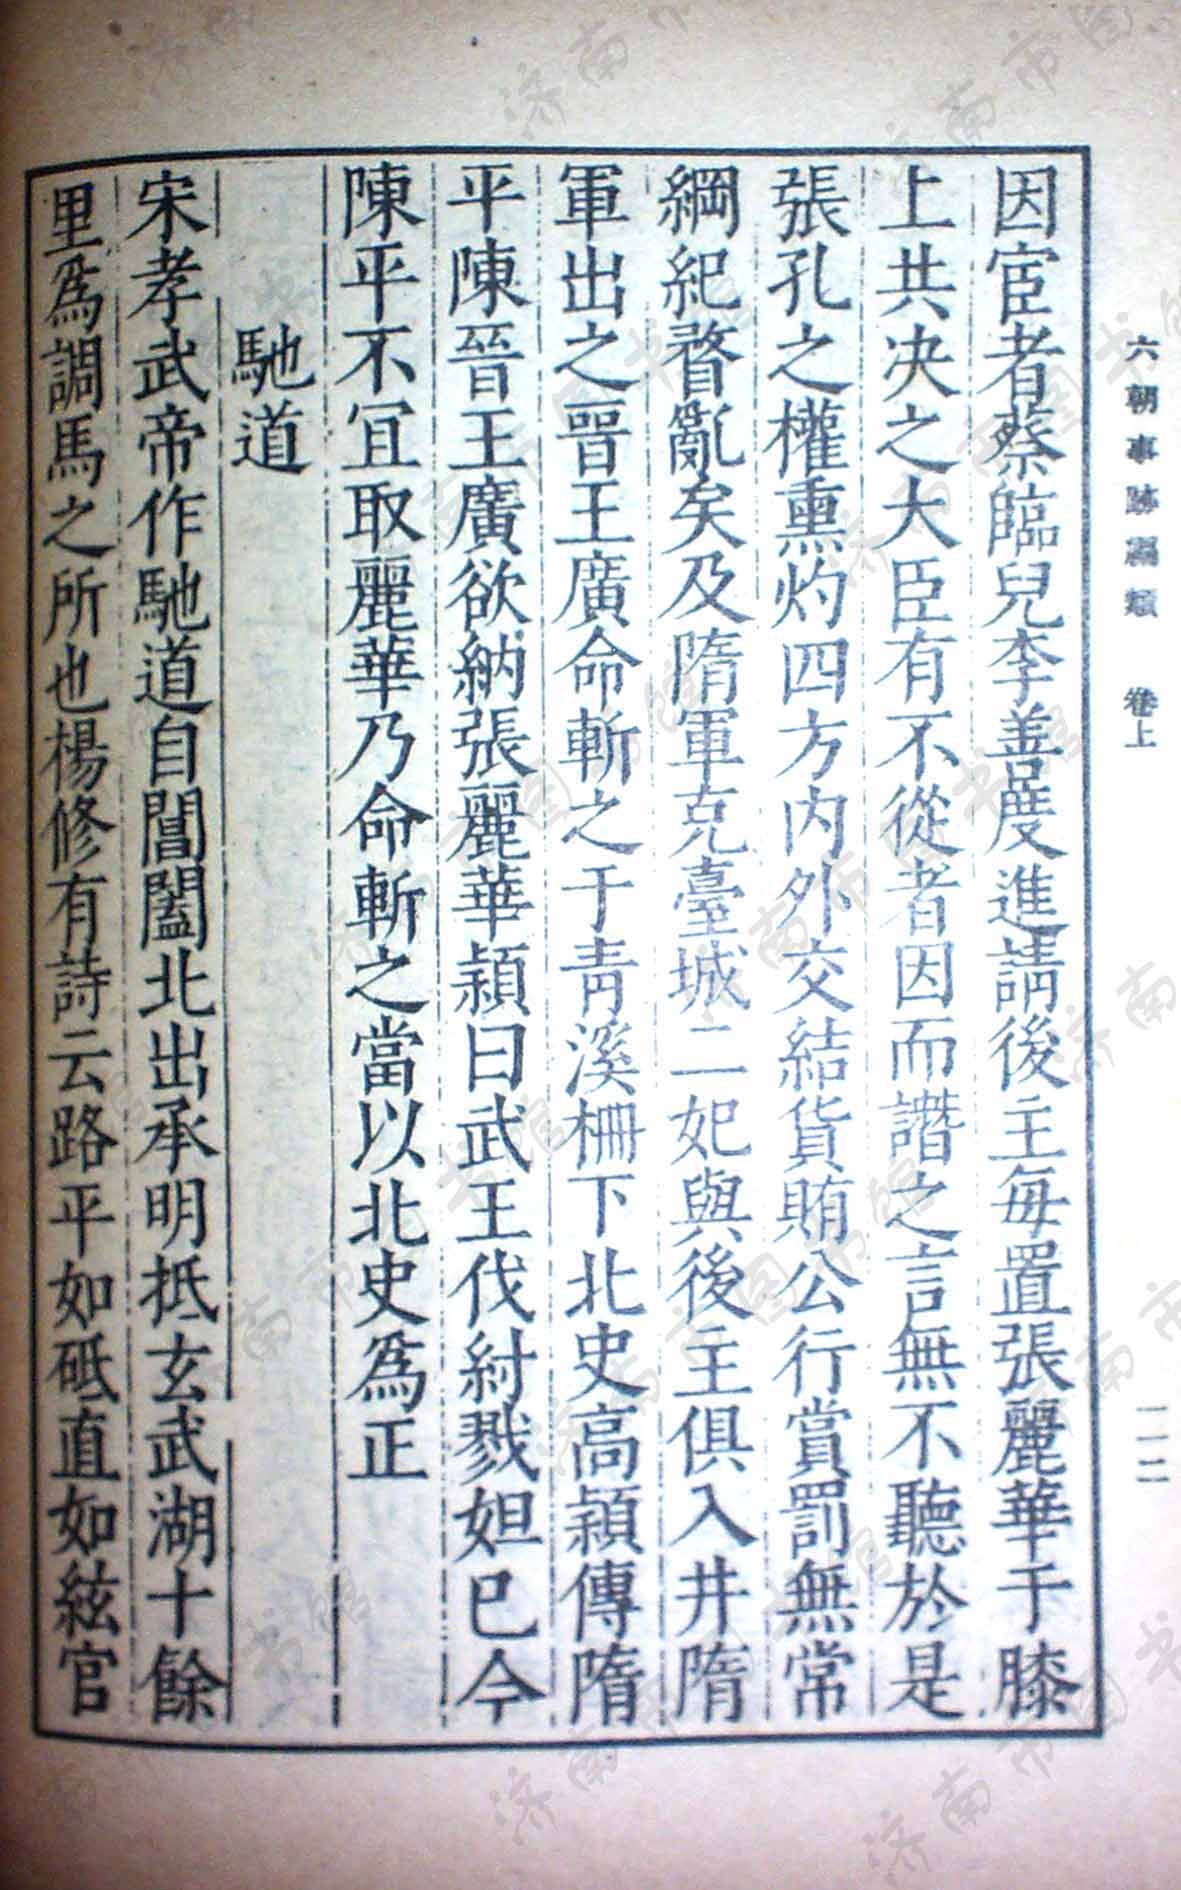 六朝事跡編類 卷上
一二
因宦者蔡臨兒李善度進請後主每置張麗華于膝
上共决之大臣有不從者因而譖之言無不聽於是
張孔之權熏灼四方内外交結貨賄公行賞罰無常
綱紀瞀亂矣及隋軍克臺城二妃與後主俱入井隋
軍出之晉王廣命斬之于青溪柵下北史高熲傳隋
平陳晉王廣欲納張麗華熲曰武王伐紂戮妲己今
陳平不冝取麗華乃命斬之當以北史爲正
馳道
宋孝武帝作馳道自閶闔北出承明抵玄武湖十餘
里爲調馬之所也楊修有詩云路平如砥直如絃官
济南市图书馆